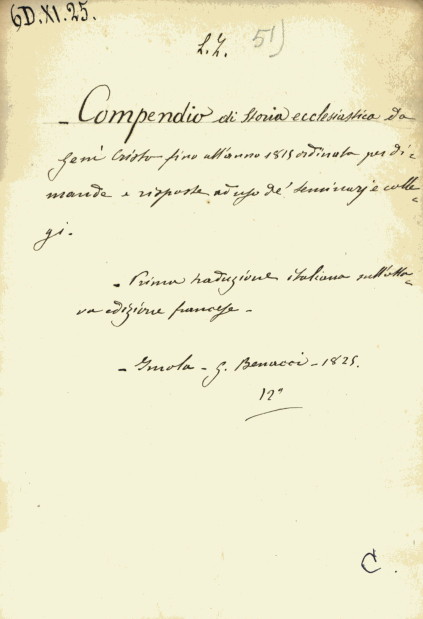 6D.XI.25.
L.Z. 51)
- Compendio di Storia ecclesiastica da
Gesù Cristo fino all'anno 1815 ordinata per di-
mande e risposte ad uso de' Seminarj e colle-
gj.
- Prima traduzione italiana sull'otta-
va edizione francese -
- Imola - G. Benacci - 1825.
12°
C.